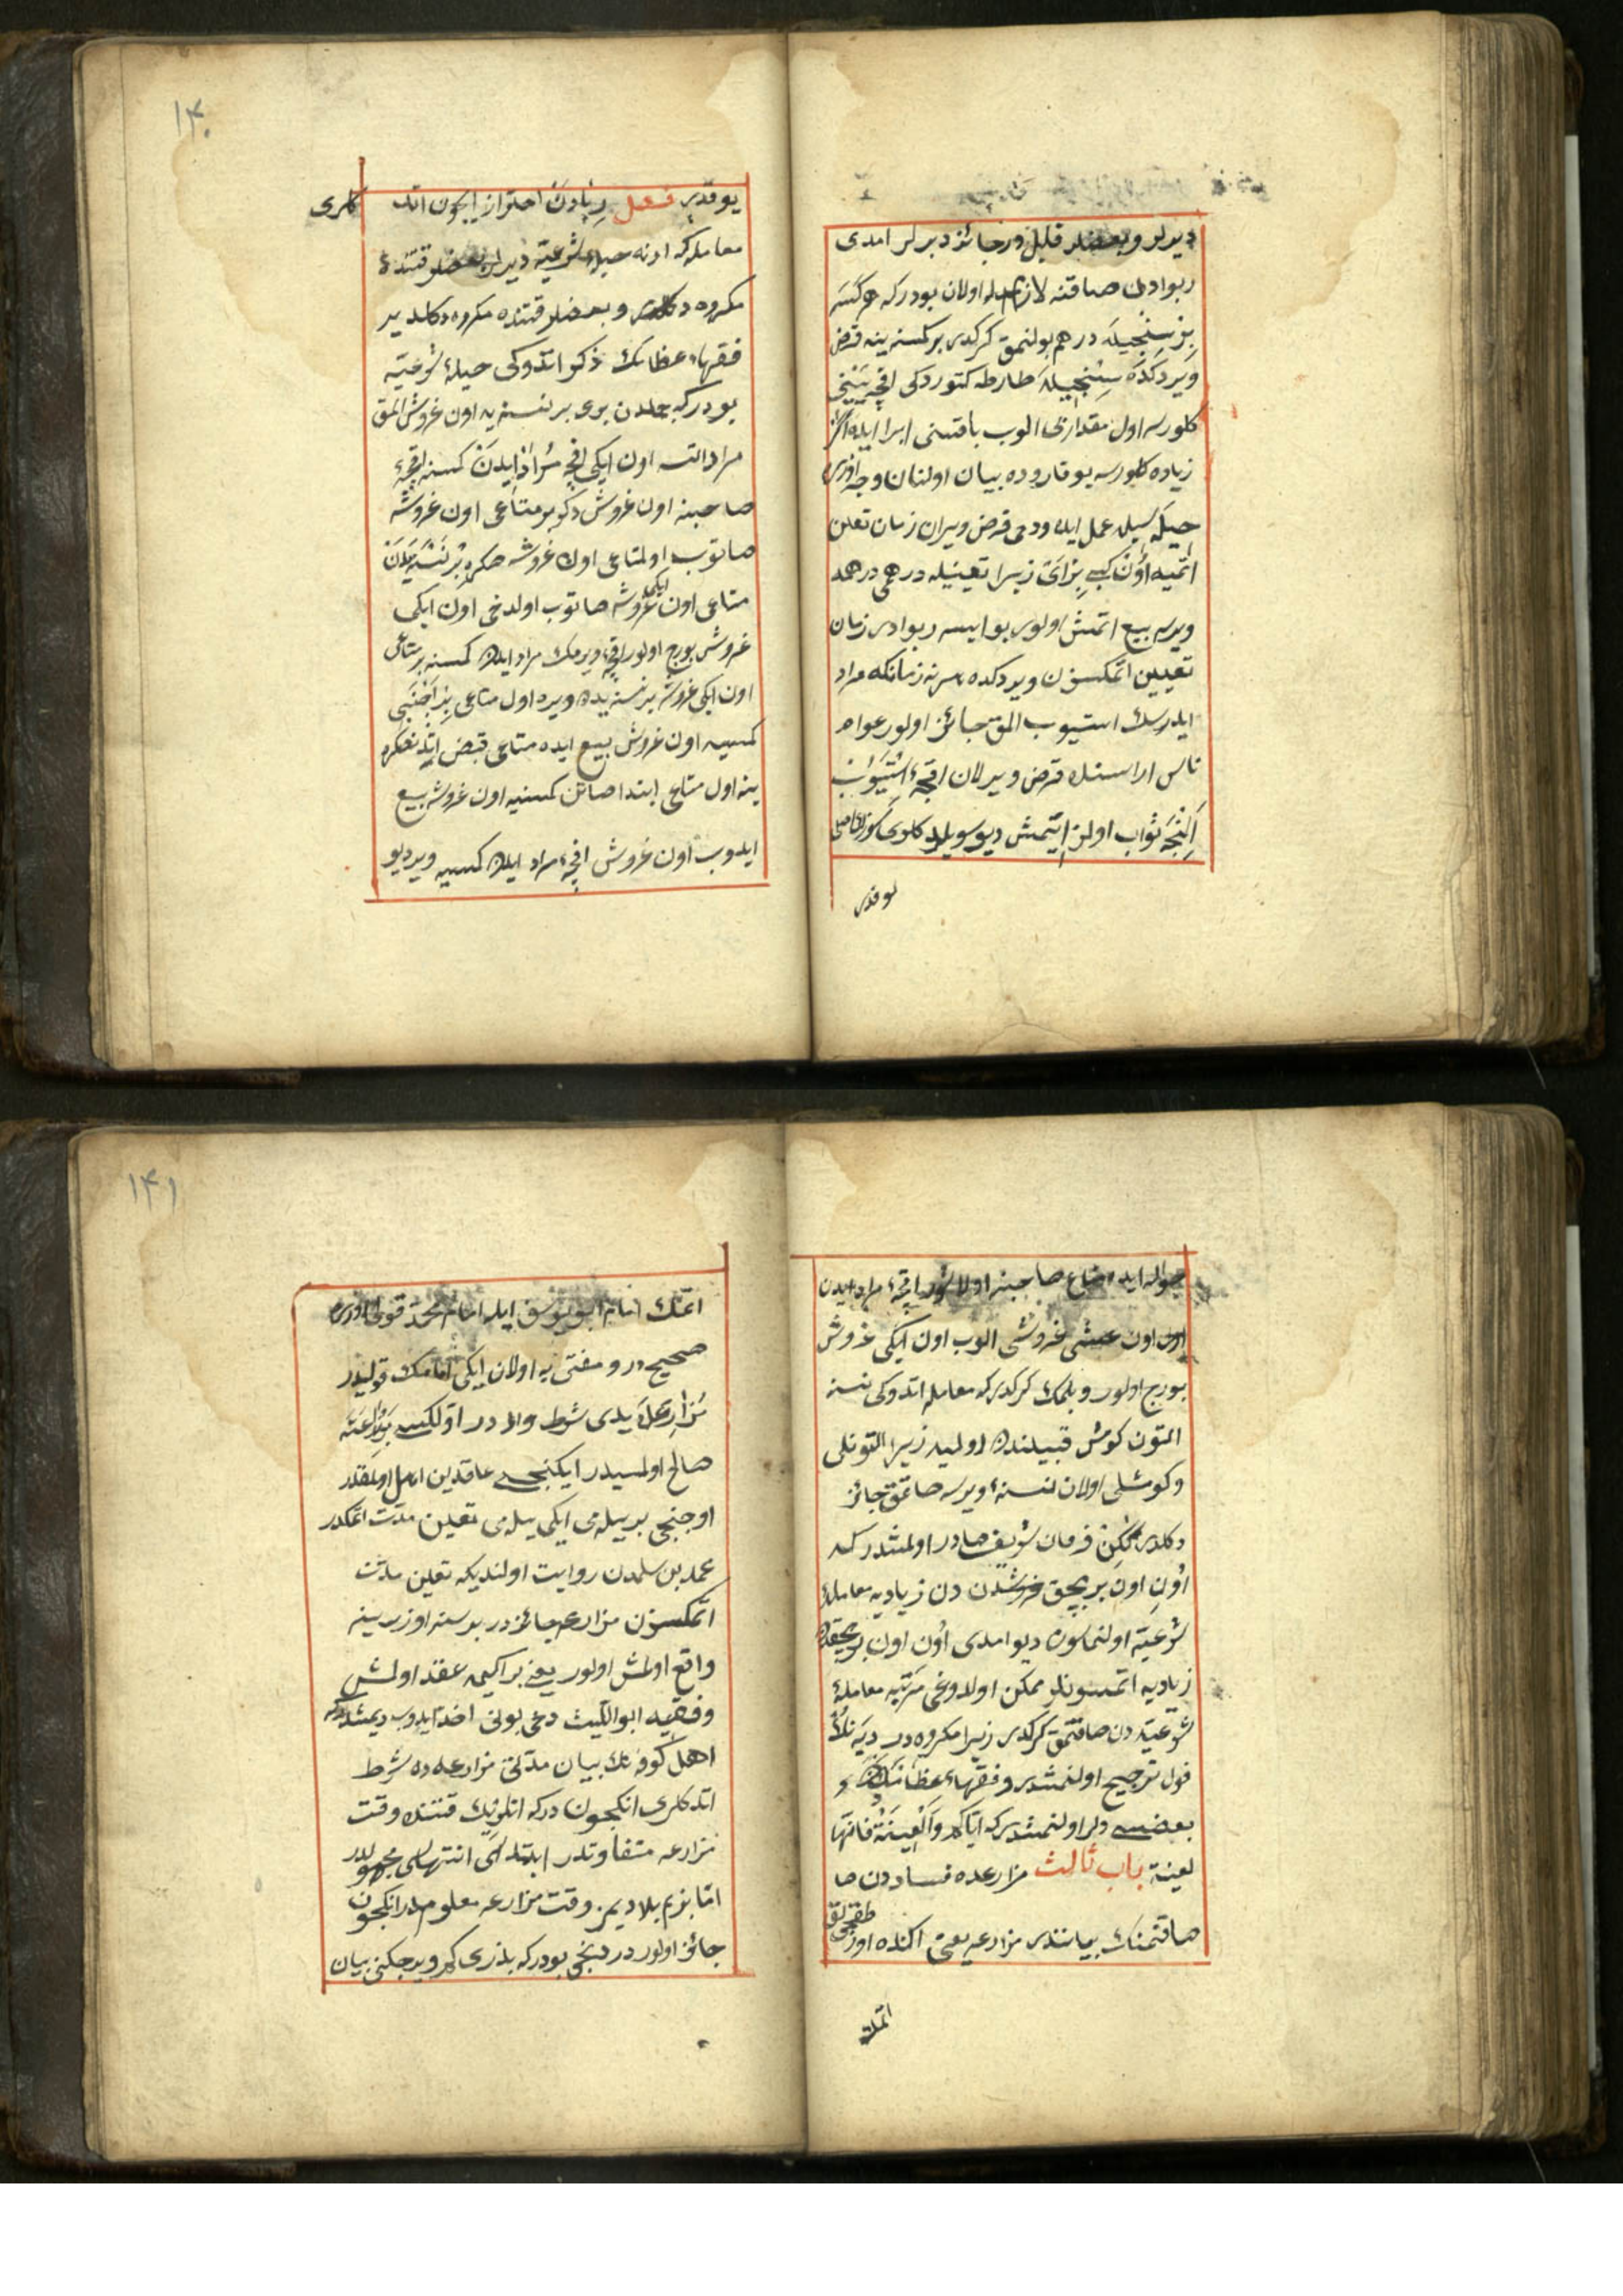 ديرلر وبعضلر قليل در جائز ديرلر امدى
ربوادن صاقنه لازم اولان بودركه هر كسه
بر سنجيله درهم بولنمق كركدر بر كمسنه ينه قرض
ويردكده سنجيله طارطه كتوردكى اقچه ينجى
كلورسه اول مقدارنى الوب باقيسنى ابرا ايده اكر
زياده كلورسه يوقاروده بيان اولنان وجه اوزره
حيله سيله عمل ايده ودخى قرض ويرن زمان تعين
اتميه زيرا تعيينله درهمى درهمه
ويرسه بيع اتمش اولور بو ايسه ربوادر زمان
تعيين اتمكسزن ويردكده هر نه زمانكه مراد
ايدرسك استيوب المق جائز اولور عوام
ناس اراسنده قرض ويرلان اقچهٔ استيوب
النجه ثواب اولنز ايتمش ديو سويلدكلرى
يوقدر
١٤٠
يوقدر فصل ربادن احتراز ايچون اتدكلرى
معامله كه اكا حيلهٔ شرعيه ديرلر بعضلر قتنده
مكروه دكلدر وبعضلر قتنده مكروه دكلدير
فقهاء عظامك ذكر اتدوكى حيلهٔ شرعيه
بودركه جلدن برى بر نسنه يه اون غروش المق
مراد اتسه اون ايكى اقچه مراد ايدن كمسنه اقچهٔ
صاحبنه اون غروش دكر بر متاعى اون غروشه
صاتوب اول متاعى اون غروشه صكره
متاعى اون ايكى غروشه صاتوب اولدخى اون ايكى
غروش بورج اولور اقچهٔ ويرمك مراد ايدن كمسنه بر متاعى
اون ايكى غروشه بر نسنه يه ويره اول متاعى بر اجنبى
كمسيه اون غروش بيع ايده متاعى قبض ايتدنصكره
ينه اول متاعى ابتدا صاتن كمسنيه اون غروشه بيع
ايدوب اون غروش اقچهٔ مراد ايدن كمسيه وير ديو
حواله ايده متاع صاحبنه اولا اقچهٔ مراد ايدن
اول اون غروشى الوب اون ايكى غروش
بورج اولور وبلمك كركدر كه معامله اتدوكى نسنه
التون كومش قبيلندن اولميه زيرا التونلى
وكومشلى اولان نسنهٔ ويرسه صاتمق جائز
دكلدر لكن فرمان شريف صادر اولمشدر كه
اون اون بر بچق غروشدن زياديه معاملهٔ
شرعيه اولنماسون ديو امدى اون اون بر بچقدن
زياديه اتمسونلر ممكن اولدوغى مرتبه معاملهٔ
شرعيه دن صاقنمق كركدر زيرا مكروه در ديه نلرك
قول ترجيح اولنمشدر وفقهاء عظامنك
بعضسى دلر اولنمشدر كه اياكم والعينة فانها
لعينة باب ثالث مزارعده فساددن صا
صاقنمنك بياننده در مزارعه يعنى اكنده اوزر
اتمك
١٤١
اتمك امام ابو يوسف ايله امام محمد قولى اوزره
صحيح در ومفتى به اولان ايكى امامك قوليدر
مزارعه يدى شرط واردر اولكسى ير زراعته
صالح اولمسيدر ايكنجى عاقدين اهل اولمقدر
اوچنجى بر ييلمى ايكى ييلمى تعيين مدت اتمكدر
محمد بن سلمه دن روايت اولنديكه تعيين مدت
اتمكسزن مزارعه جائزدر بر سنه اوزرينه
واقع اولمش اولور يعنى بر اكيمه عقد اولمش
وفقيه ابو الليث دخى بونى اخذ ايدوب ديمشدركه
اهل كوفه نك بيان مدتى مزارعه ده شرط
اتدكلرى انكچون دركه انلرنك قتنده وقت
مزارعه متفاوتدر ابتداسى انتهاسى مجهولدر
اما بزم بلاديمز وقت مزارعه معلومدر انكچون
جائز اولور دردنجى بودركه بذرى كم ويرجكنى بيان